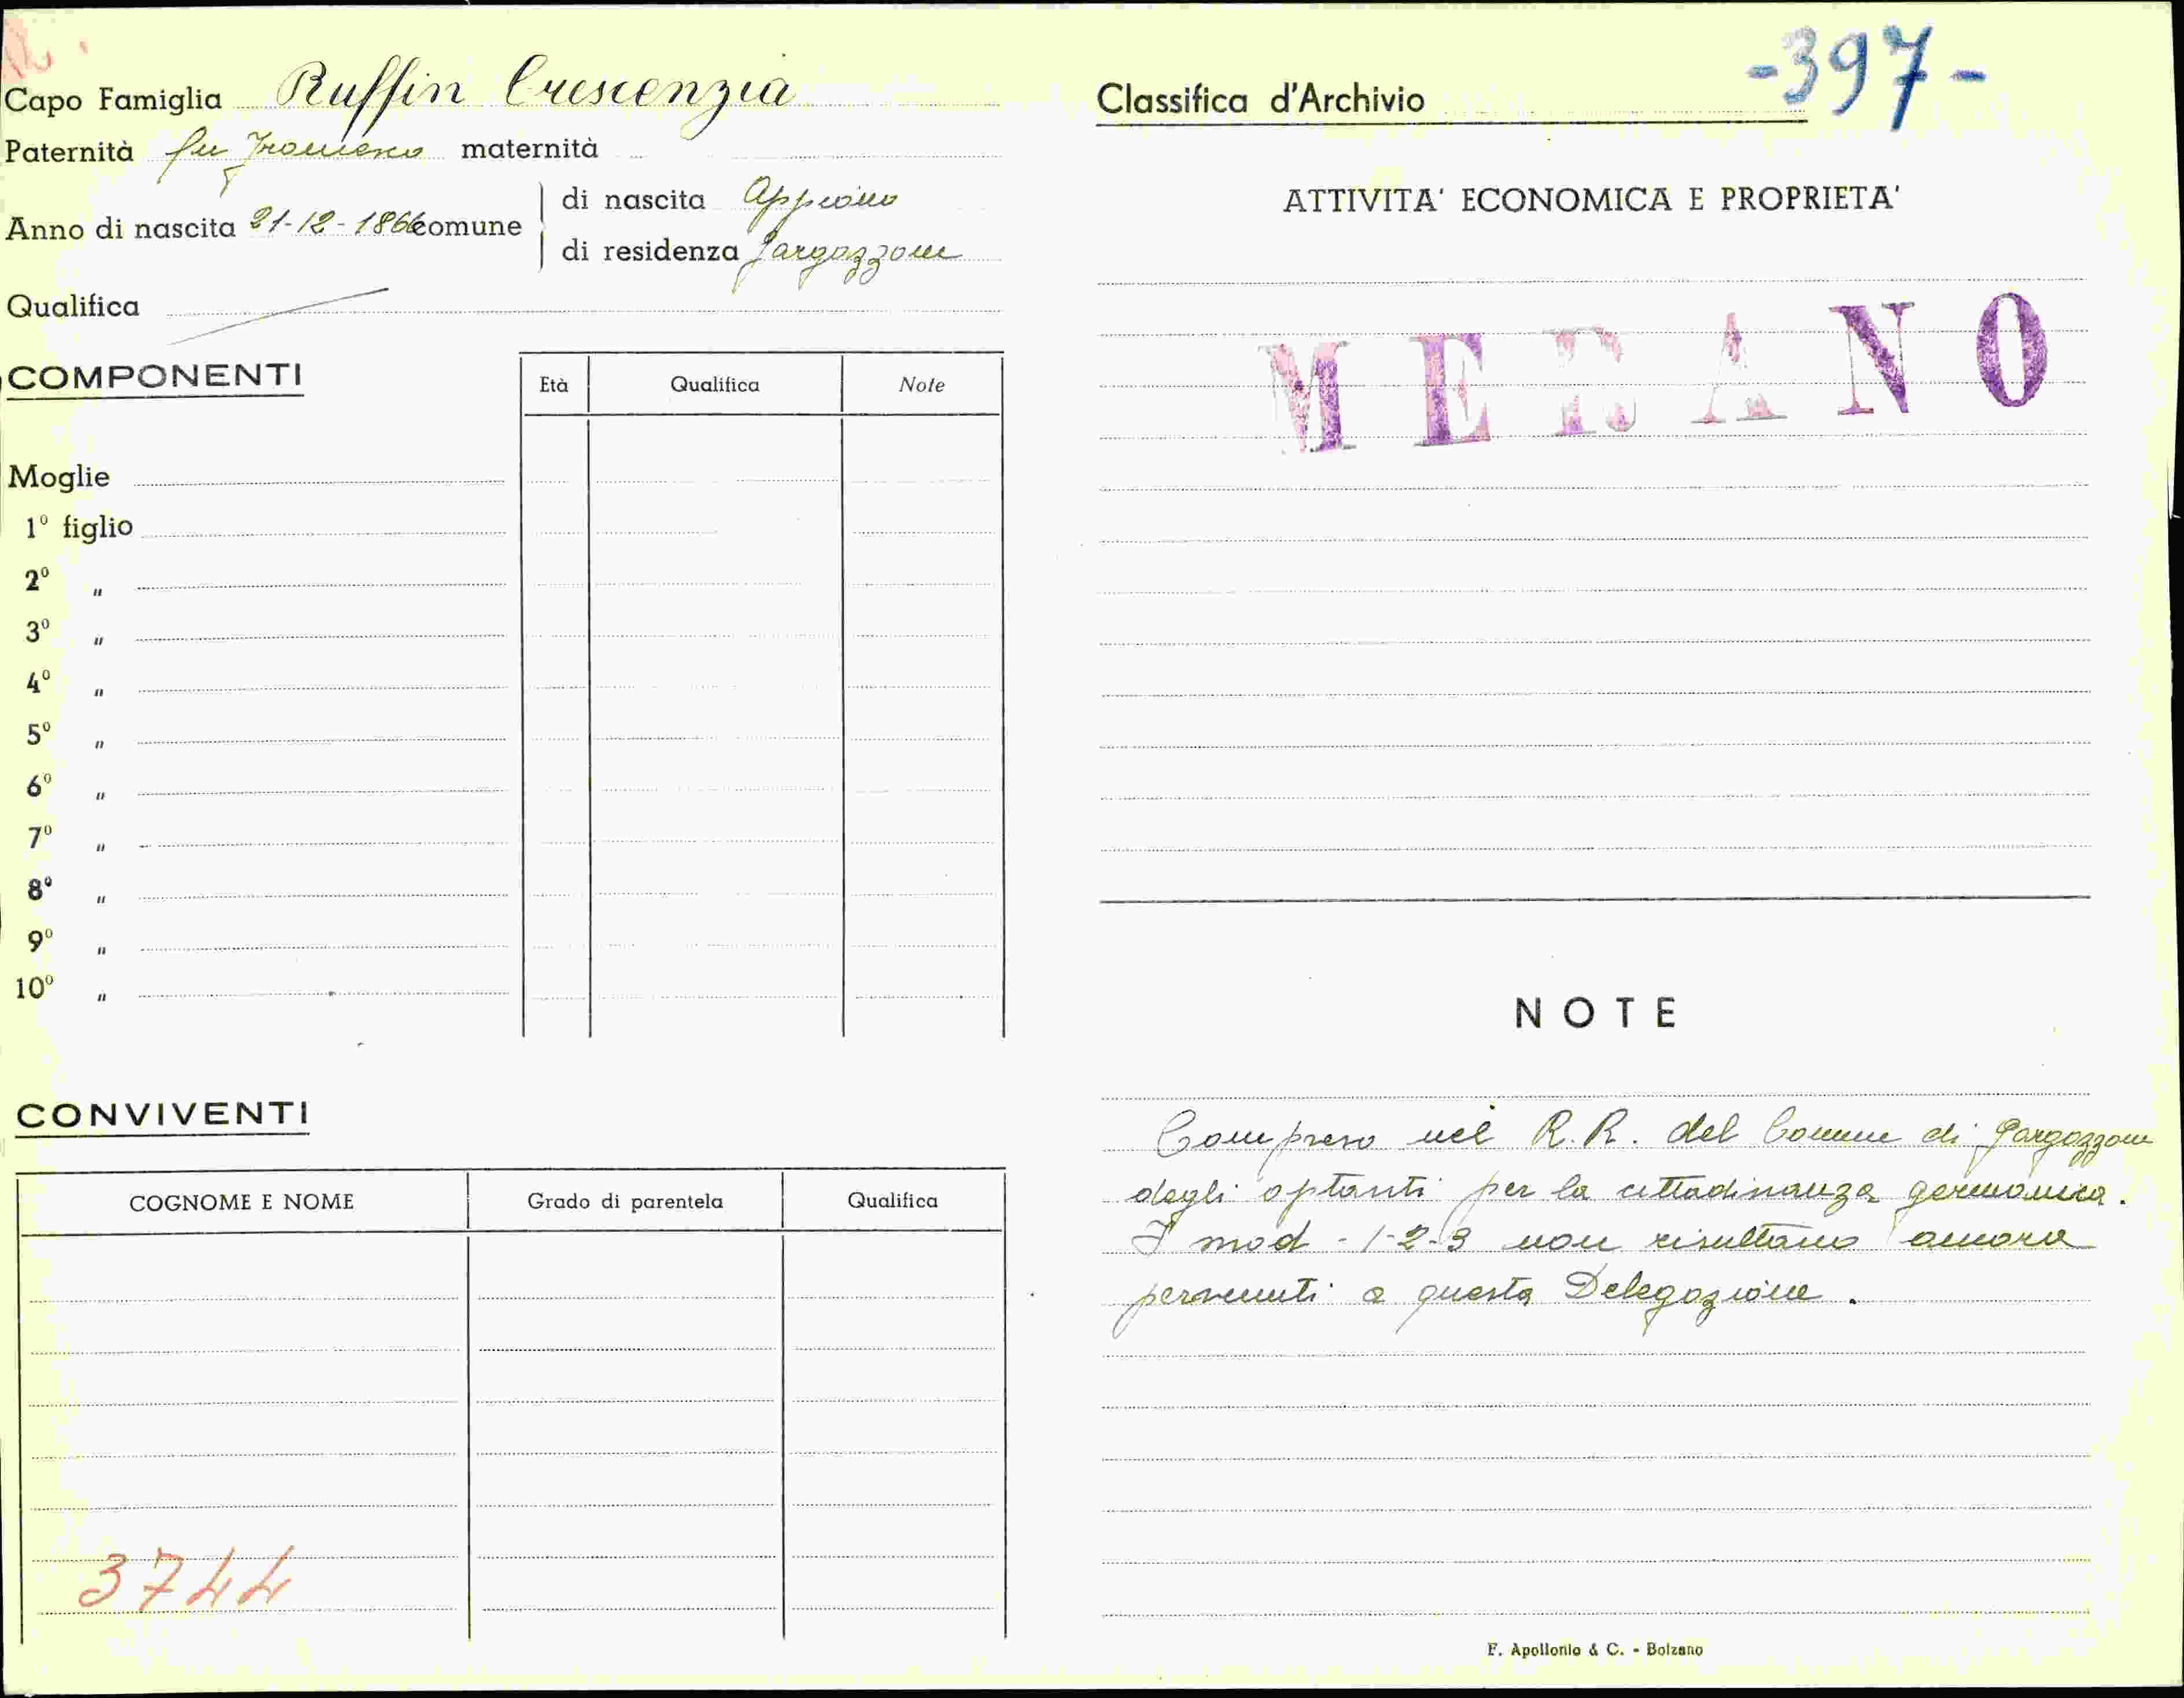 Capo Famiglia Ruffin Crescenzia
Paternità fu Francesco maternità
Anno di nascita 21-12-1866 comune
di nascita Appiano
di residenza Gargazzone
Qualifica
COMPONENTI
Età Qualifica Note
Moglie
1º figlio
2º "
3º "
4º "
5º "
6º "
7º "
8º "
9º "
10º "
CONVIVENTI
COGNOME E NOME Grado di parentela Qualifica
3744
Classifica d'Archivio -397-
ATTIVITA' ECONOMICA E PROPRIETA'
MERANO
NOTE
Compreso nel R.R. del Comune di Gargazzone
degli optanti per la cittadinanza germanica.
I mod - 1-2-3 non risultano ancora
pervenuti a questa Delegazione.
F. Apollonio & C. - Bolzano